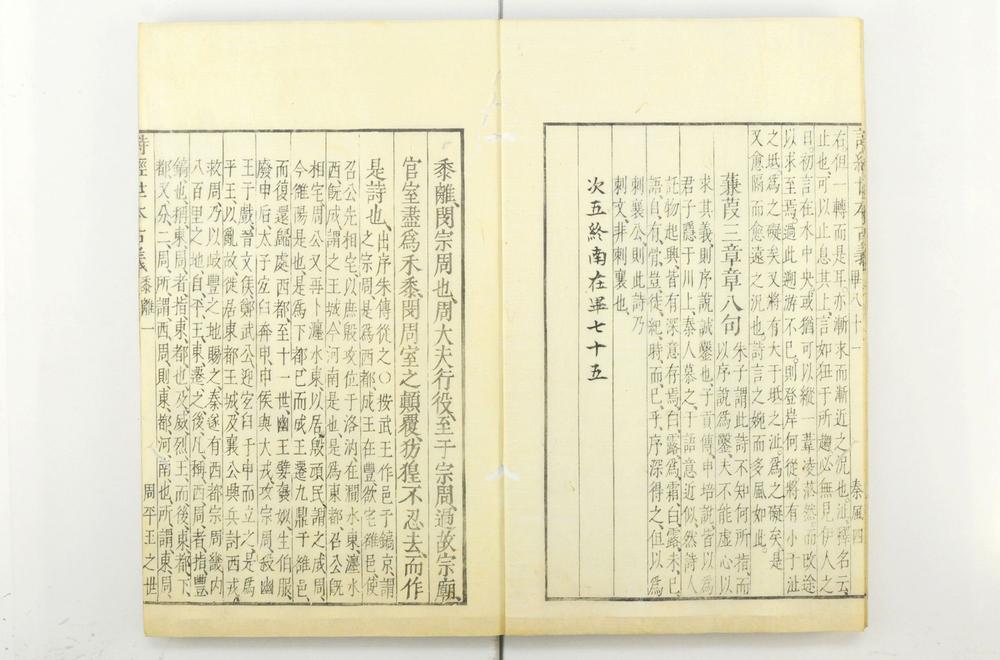 右但一轉而是耳亦漸求而漸近之況也沚釋名云
止也可以止息其上言如狃于所趨必無見伊人之
日初言在水中央或猶可以縱一葦凌茫然而改途
以求至焉遏此遡游不已則登岸何從將有小于沚
之坻爲之礙矣又將有大于坻之沚爲之礙矣是
又愈關而愈遠之況也詩言之婉而多風如此
蒹葭三章章八句朱子謂此詩不知何所指而
以序說爲鑿夫不能虛心以
求其義則序說誠鑿也子貢傳申培說皆以爲
君子隱于川上秦人慕之于語意近似然詩人
託物起興皆有深意存焉白露爲霜白露未已
語自有骨豈徒紀時而已乎序深得之但以爲
刺襄公則此詩乃
刺文非刺襄也
次五終南在畢七十五
秦風四
詩經世本古義
黍離一
周平王之世
黍離閔宗周也周大夫行役至于宗周過故宗廟
宮室盡爲禾黍閔周室之顛覆彷徨不忍去而作
是詩也出序朱傳從之○按武王作邑于鎬京謂
之宗周是爲西都成王在豐欲宅雒邑使
召公先相宅以庶殷攻位于洛汭在澗水東瀍水
西旣成謂之王城今河南是也是爲東都召公旣
相宅周公又再卜瀍水東以居殷頑民謂之成周
今雒陽是也是爲下都已而成王遷九鼎于雒邑
而復還歸處西都至十一世幽王嬖襃姒生伯服
廢申后太子宜臼奔申申侯與犬戎攻宗周殺幽
王于戲晉文侯鄭武公迎宜臼于申而立之是爲
平王以亂故徙居東都王城及襄公興兵討西戎
救周乃以岐豐之地賜之秦遂有西都宗周畿內
八百里之地自平王東遷之後凡稱西周者指豐
鎬也稱東周者指東都也及威烈王而後東都下
都又分二周所謂西周則東都河南也所謂東周